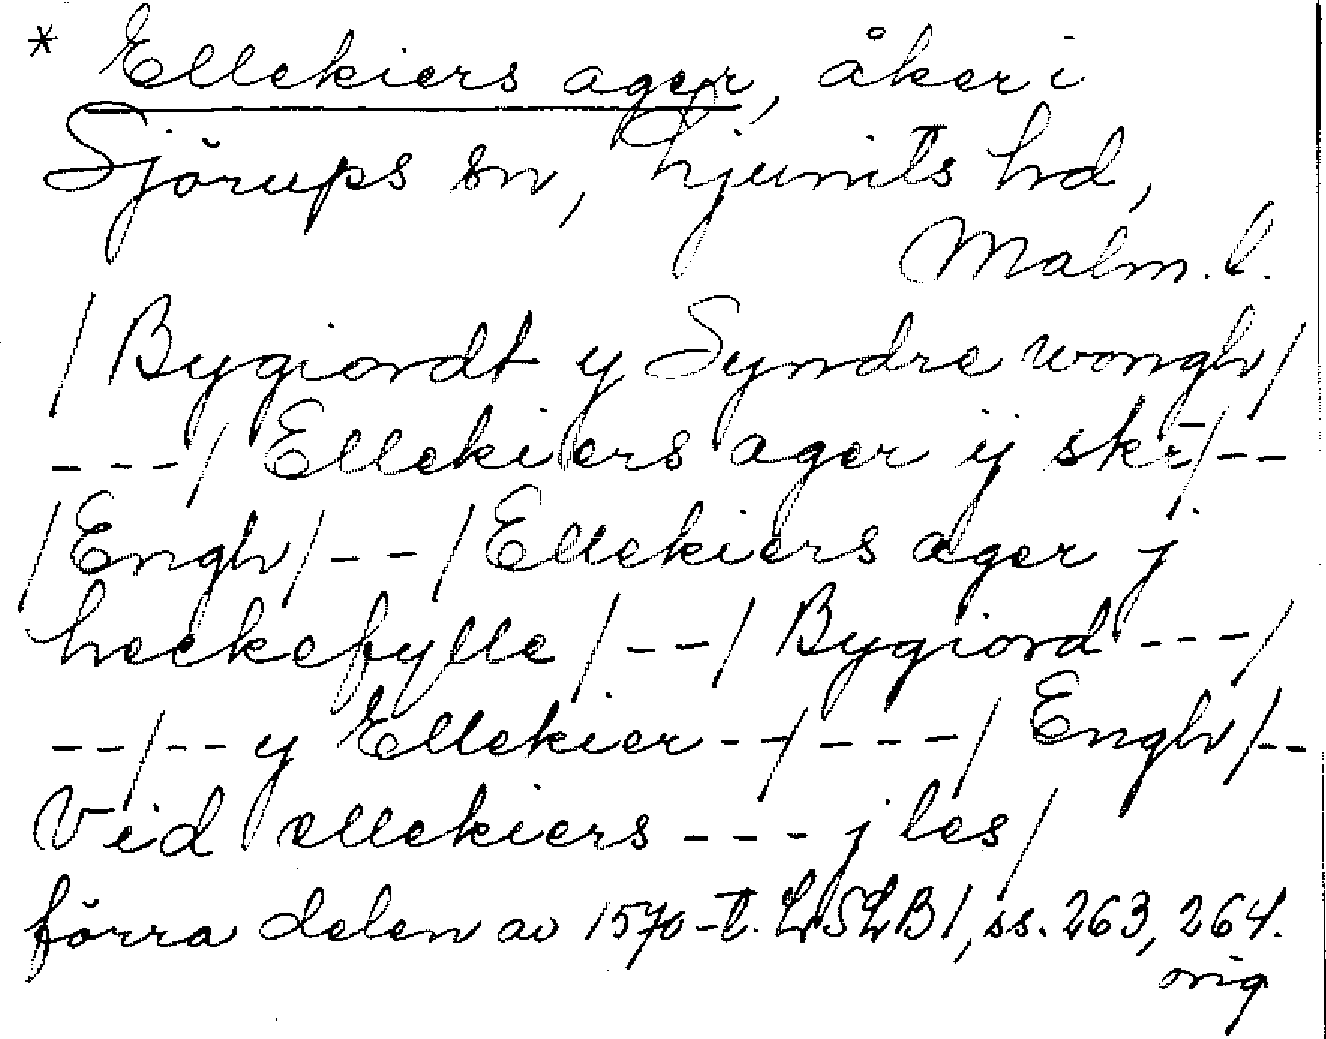 * Ellekiers ager, åker i
Sjörups sn, Ljunits hd,
Malm. l.
/ Bygiordt y Syndre wongh /
--- / Ellekiers ager ij skr / --
/ Engh / -- / Ellekiers ager j
heckefylle / -- / Bygiord --- /
-- / -- y Ellekier -- / --- / Engh / --
Vid ellekiers --- j les /
förra delen av 1570-t. LSLB 1, ss. 263, 264.
orig